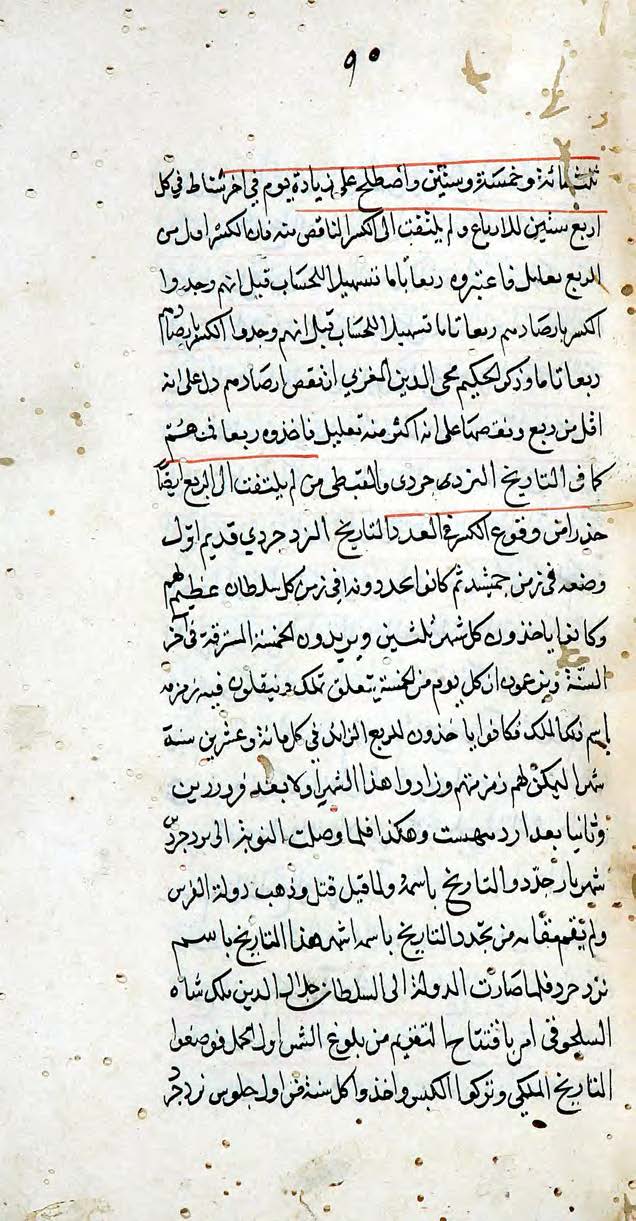 ٩٠
ثلثمائة وخمسة وستين واصطلح على زيادة يوم في اخر شباط في كل
اربع سنين للارباع ولم يلتفت الى الكسر الناقص منه فان الكسر اقل من
الربع بقليل فاعتبروه ربعا تاما تسهيلا للحساب قيل انهم وجدوا
الكسر بارصادهم ربعا تاما تسهيلا للحساب قيل انهم وجدوا الكسر بارصادهم
ربعا تاما وذكر الحكيم محي الدين المغربي ان نقص ارصادهم دل على انه
اقل من ربع وبعضها على انه اكثر منه بقليل فاخذوه ربعا
كما في التاريخ اليزدى جردى والقبطى من لم يلتفت الى الربع ايضا
حذرا من وقوع الكسر في العدد التاريخ اليزدجردي قديم اول
وضعه في زمن جمشيد ثم كانوا يجددونه في زمن كل سلطان عظيم لهم
وكانوا ياخذون كل شهر ثلثين ويزيدون الخمسة المسترقة في آخر
السنة ويزعمون ان كل يوم من الخمسة يتعلق بملك فيه
باسم ذلك الملك فكانوا ياخذون للربع الزائد في كل مائة وعشرين سنة
شهرا ليكن لهم وزادوا هذا الشهر اولا بعد فروردين
وثانيا بعد ارديبهشت وهكذا فلما وصلت النوبة الى يزدجرد
شهريار جددوا التاريخ باسمه ولما قيل قتل وذهب دولة الفرس
ولم يقم مقامه من يجدد التاريخ باسمه اشتهر هذا التاريخ باسم
يزدجرد فلما صارت الدولة الى السلطان جلال الدين ملك شاه
السلجوقى امر بافتتاح التقويم من بلوغ الشمس اول الحمل فوضعوا
التاريخ الملكي وتركوا الكبس واخذوا كل سنة من اول جلوس يزدجرد